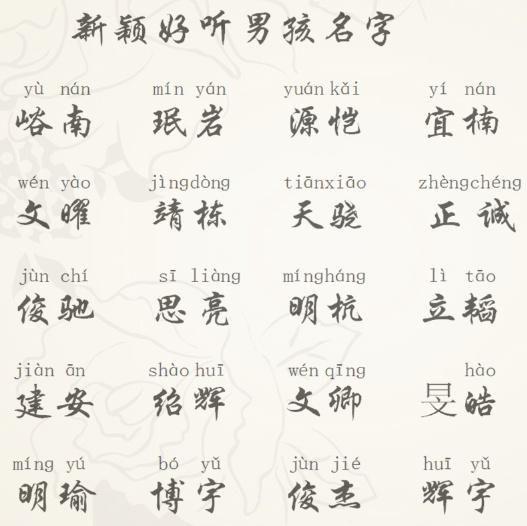 新颖好听男孩名字
yù nán mín yán yuán kǎi yí nán
峪南 珉岩 源恺 宜楠
wén yào jìngdòng tiānxiāo zhèngchéng
文曜 靖栋 天骁 正诚
jùn chí sī liàng mínghánɡ lì tāo
俊驰 思亮 明杭 立韬
jiàn ān shào huī wén qīng hào
建安 绍辉 文卿 旻皓
míng yú bó yǔ jùn jié huī yǔ
明瑜 博宇 俊杰 辉宇